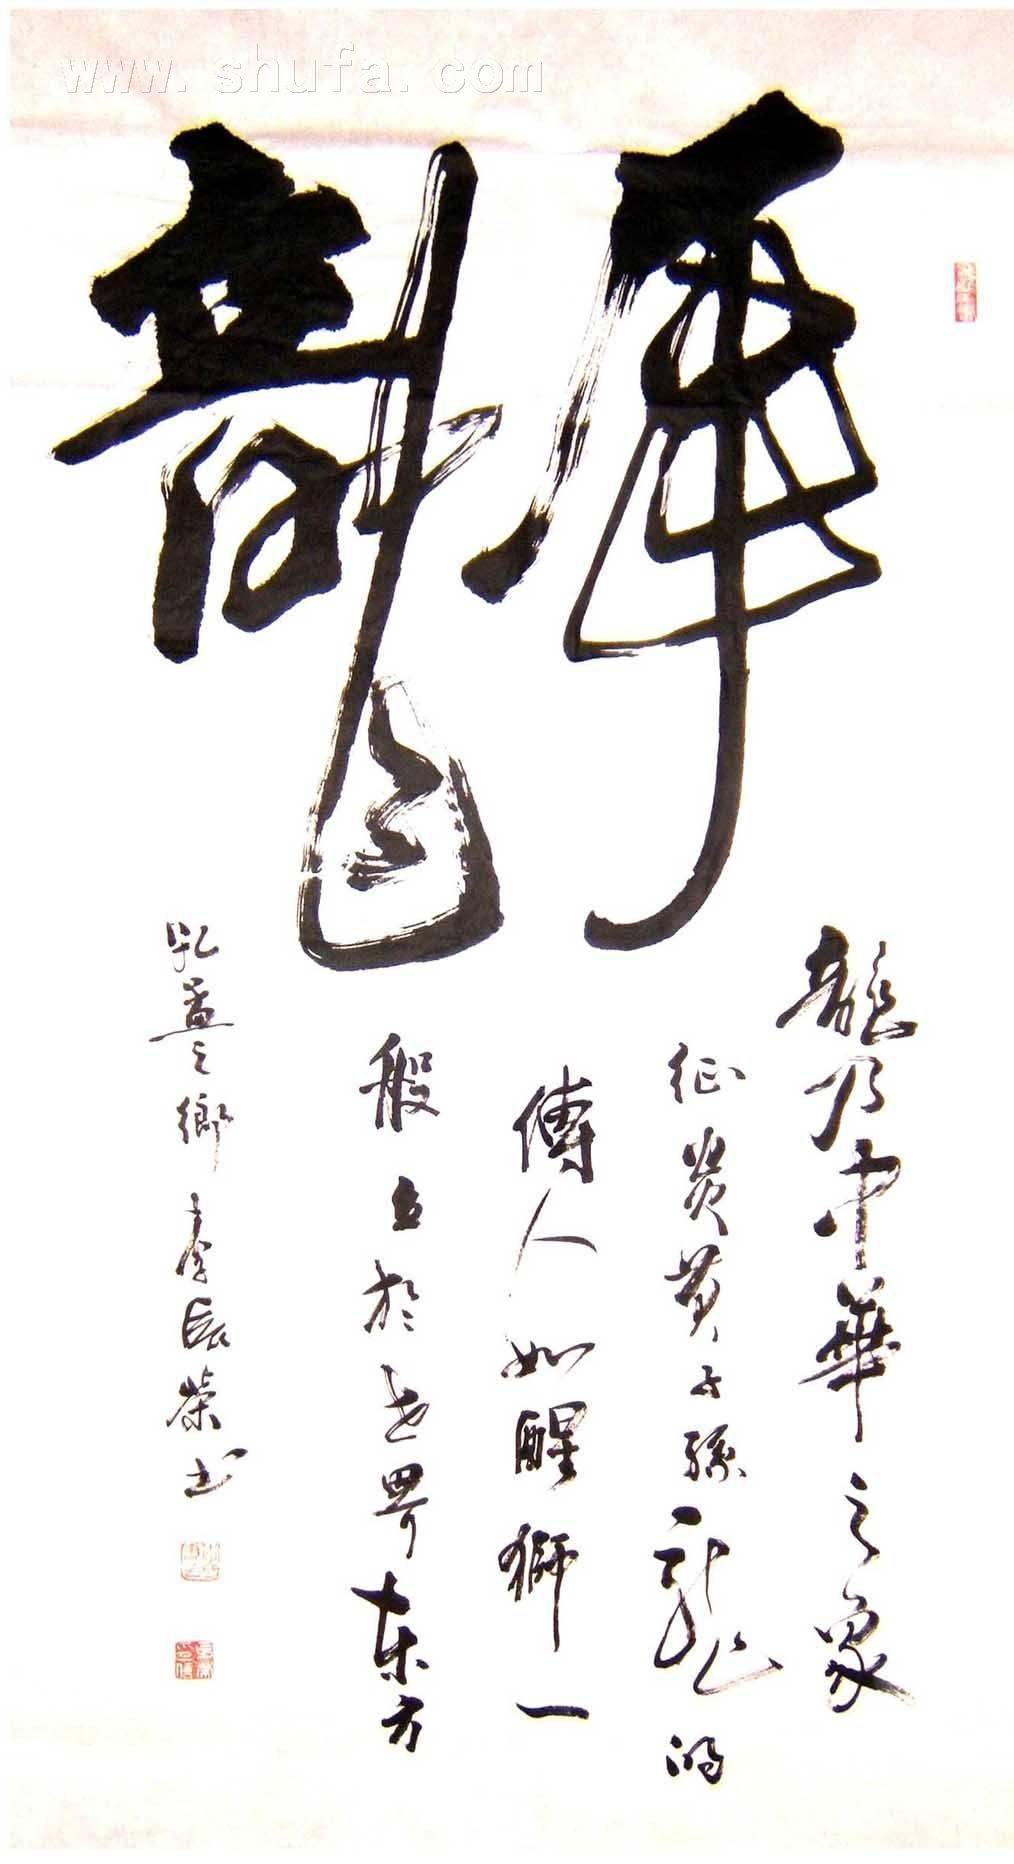 www.shufa.com
龍
龍乃中華之象
征炎黄子孫龍的
傳人如醒獅一
般立於世界东方
孔孟之鄉李榮书